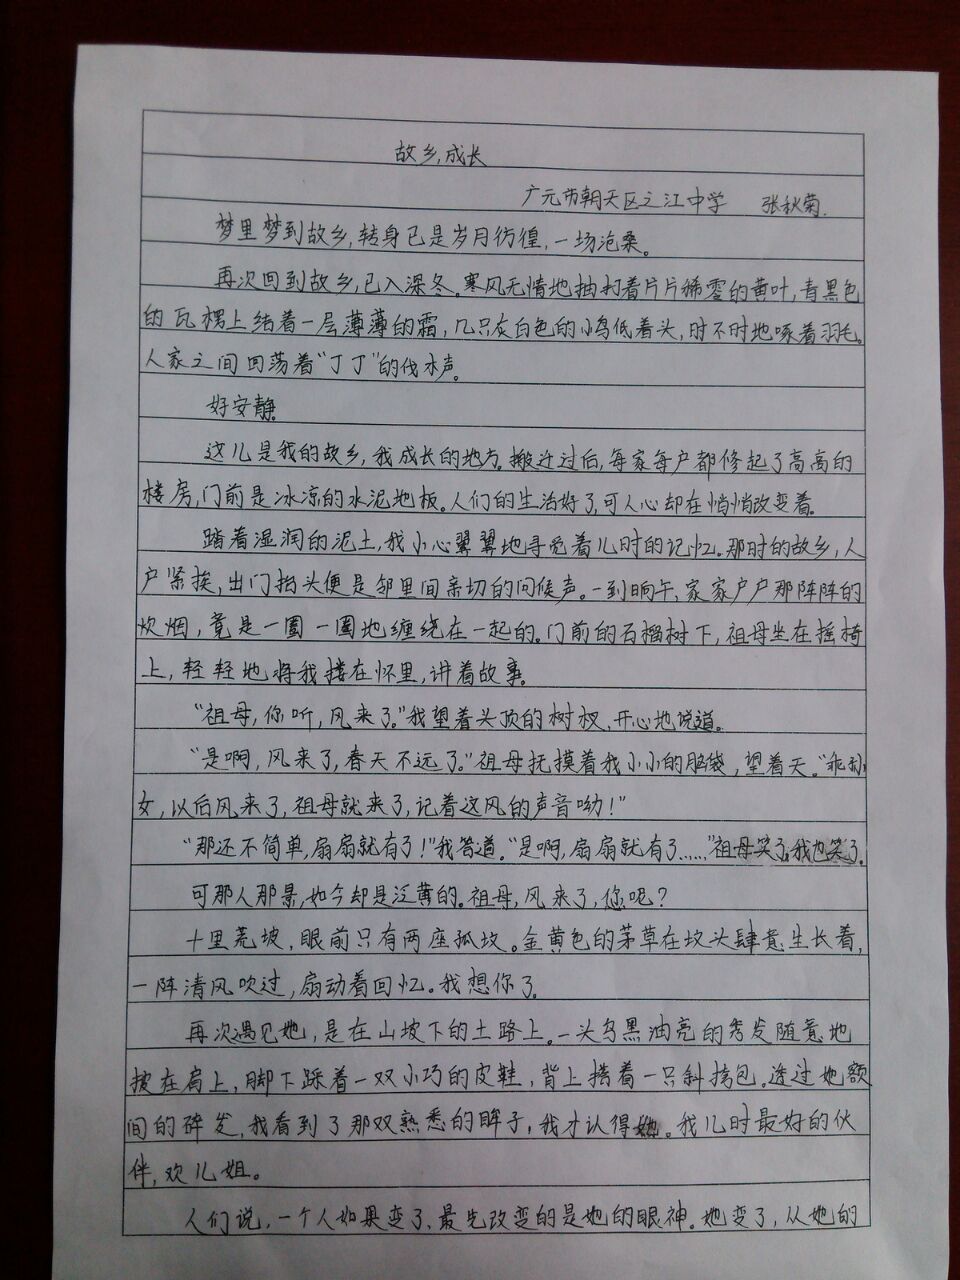 故乡,成长
广元市朝天区之江中学 张秋菊.
梦里梦到故乡,转身已是岁月彷徨,一场沧桑。
再次回到故乡,已入深冬。寒风无情地抽打着片片稀零的黄叶,青黑色
的瓦楞上结着一层薄薄的霜,几只灰白色的小鸟低着头,时不时地啄着羽毛。
人家之间回荡着“丁丁”的伐木声。
好安静。
这儿是我的故乡,我成长的地方。搬迁过后,每家每户都修起了高高的
楼房,门前是冰凉的水泥地板。人们的生活好了,可人心却在悄悄改变着。
踏着湿润的泥土,我小心翼翼地寻觅着儿时的记忆。那时的故乡,人
户紧挨,出门抬头便是邻里间亲切的问候声。一到晌午,家家户户那阵阵的
炊烟,竟是一圈一圈地缠绕在一起的。门前的石榴树下,祖母坐在摇椅
上,轻轻地将我搂在怀里,讲着故事。
“祖母,你听,风来了。”我望着头顶的树杈,开心地说道。
“是啊,风来了,春天不远了。”祖母抚摸着我小小的脑袋,望着天。“乖孙
女,以后风来了,祖母就来了,记着这风的声音呦!”
“那还不简单,扇扇就有了!”我答道。“是啊,扇扇就有了……”祖母笑了,我也笑了。
可那人那景,如今却是泛黄的。祖母,风来了,您呢?
十里荒坡,眼前只有两座孤坟。金黄色的茅草在坟头肆意生长着,
一阵清风吹过,扇动着回忆。我想你了。
再次遇见她,是在山坡下的土路上。一头乌黑油亮的秀发随意地
披在肩上,脚下踩着一双小巧的皮鞋,背上搭着一只斜挎包。透过她额
间的碎发,我看到了那双熟悉的眸子,我才认得她。我儿时最好的伙
伴,欢儿姐。
人们说,一个人如果变了,最先改变的是她的眼神。她变了,从她的